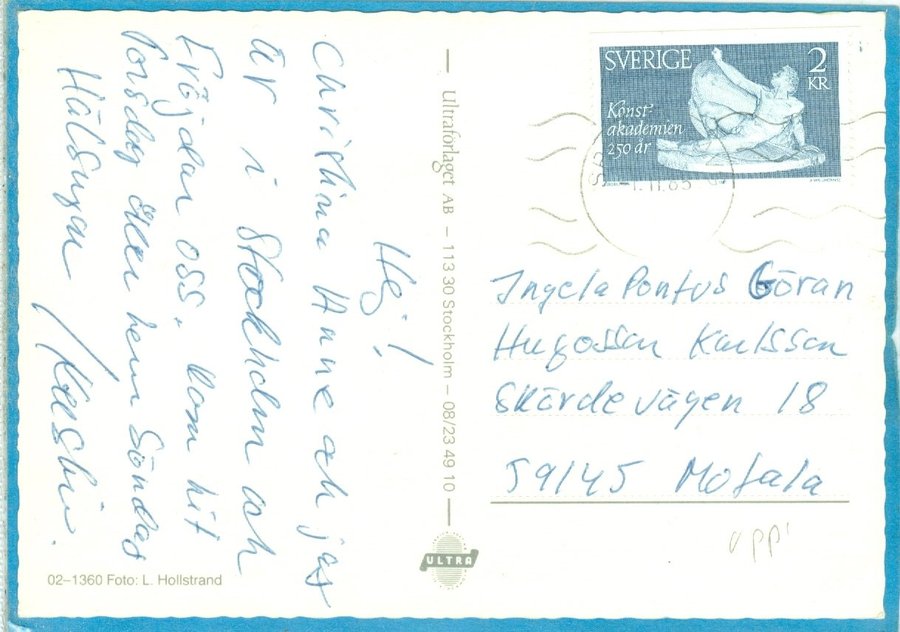 Hej!
Christina Anne och jag
är i Stockholm och
fröjdar oss. Kom hit
Torsdag åker hem Söndag
Hälsningar Kerstin.
02–1360 Foto: L. Hollstrand
Ultraförlaget AB – 113 30 Stockholm – 08/23 49 10
ULTRA
SVERIGE 2 KR
Konst-
akademien
250 år
Ingela Pontus Göran
Hugosson Karlsson
Skördevägen 18
59145 Motala
upp!